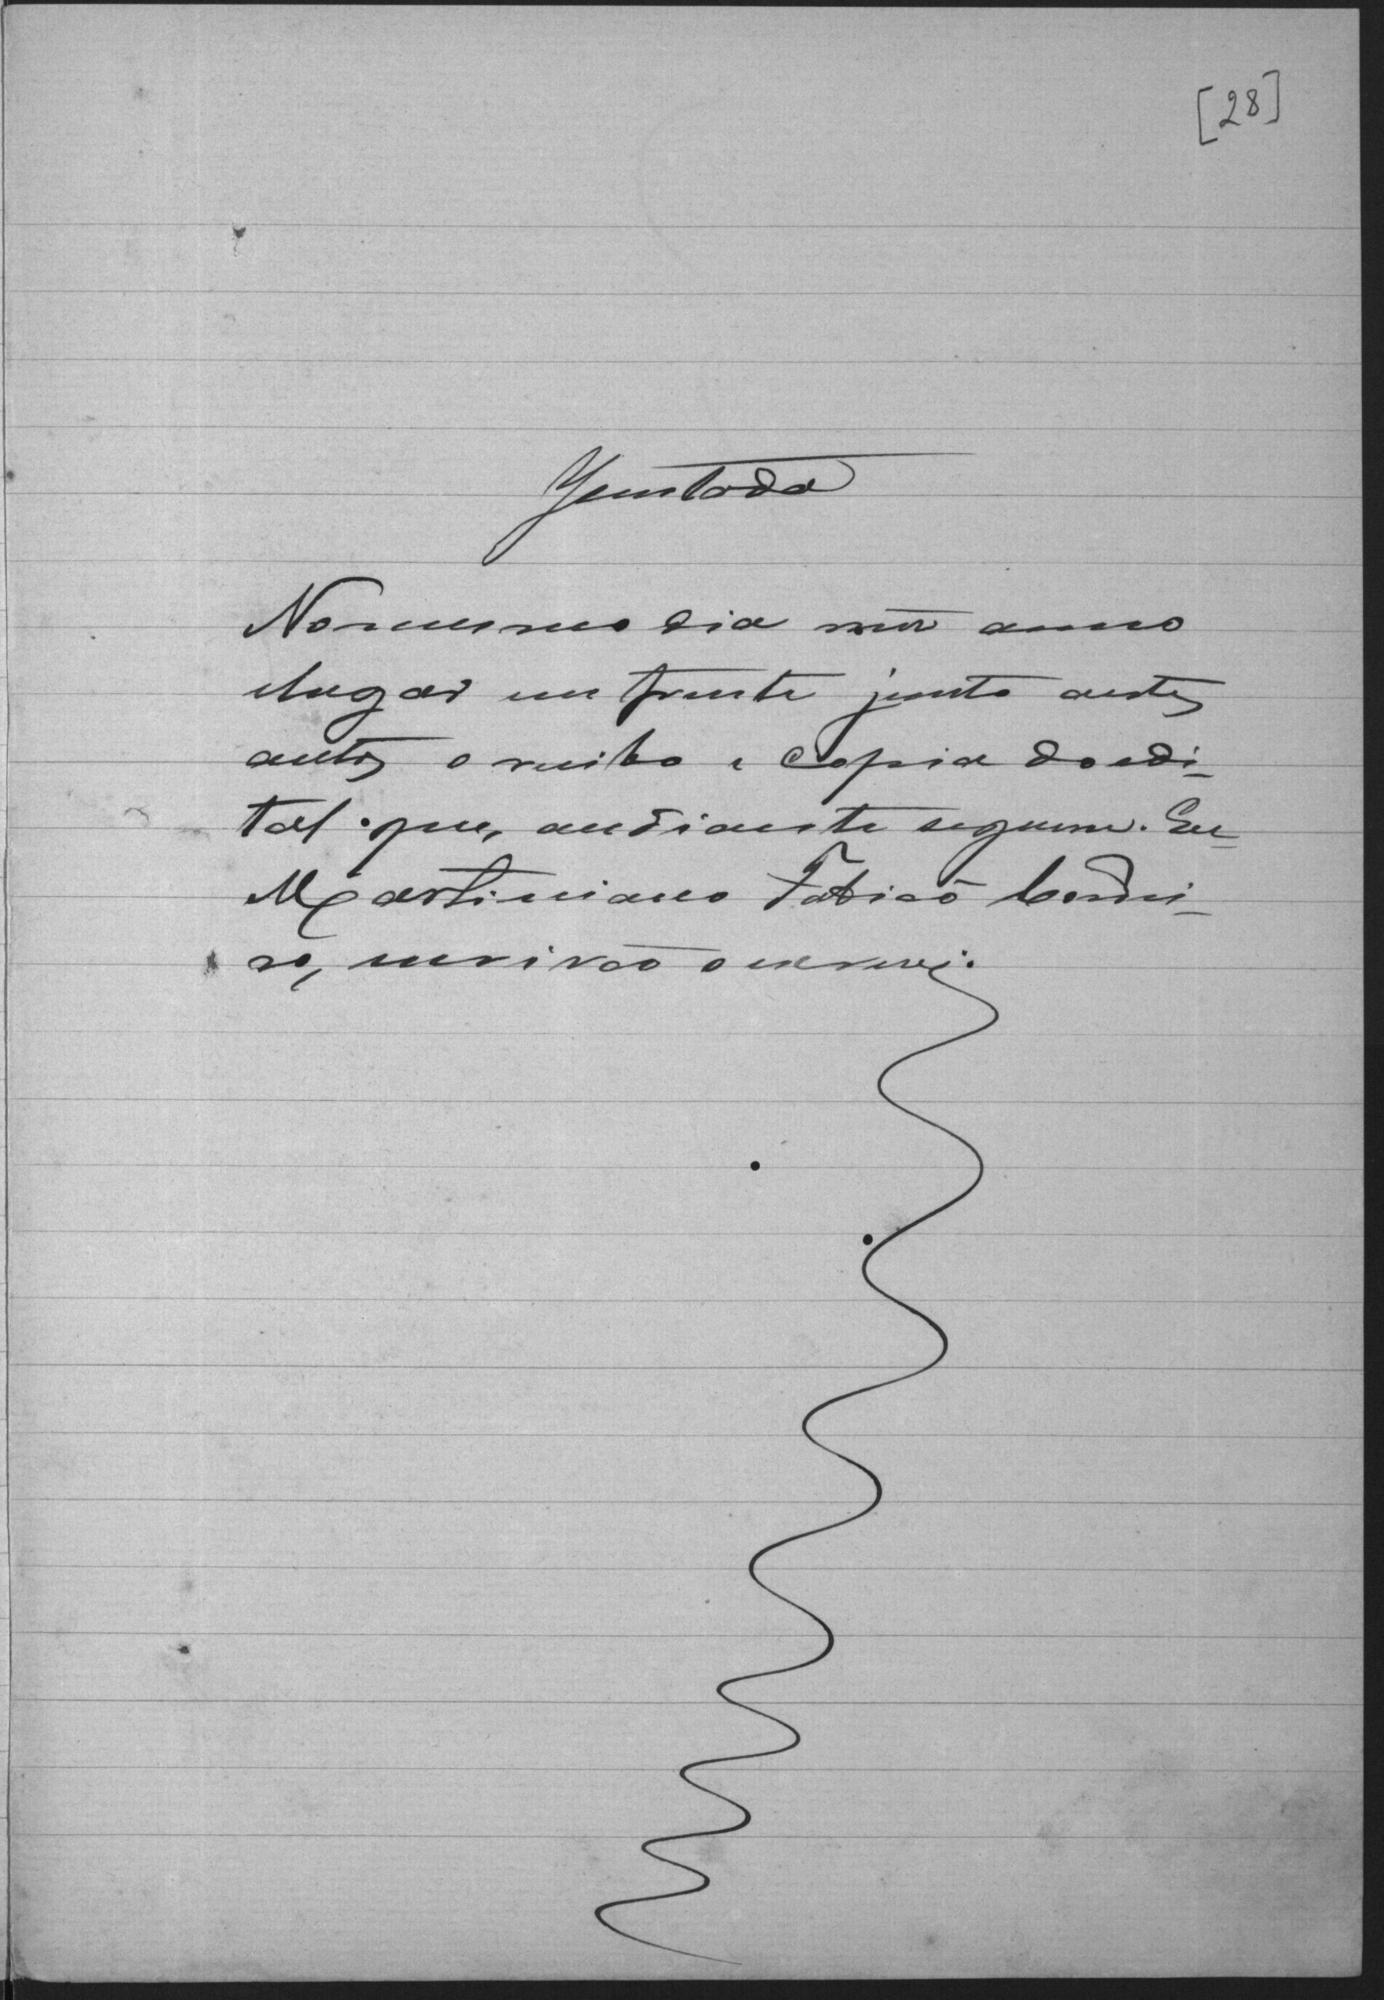 [28]
Juntada
No mesmo dia mez anno
e lugar em frente junto a estes
autos o recibo e copia do edi-
tal que, an diante seguem. Eu
Martiniano Fabião Cordei-
ro, escrivão o escrevi.